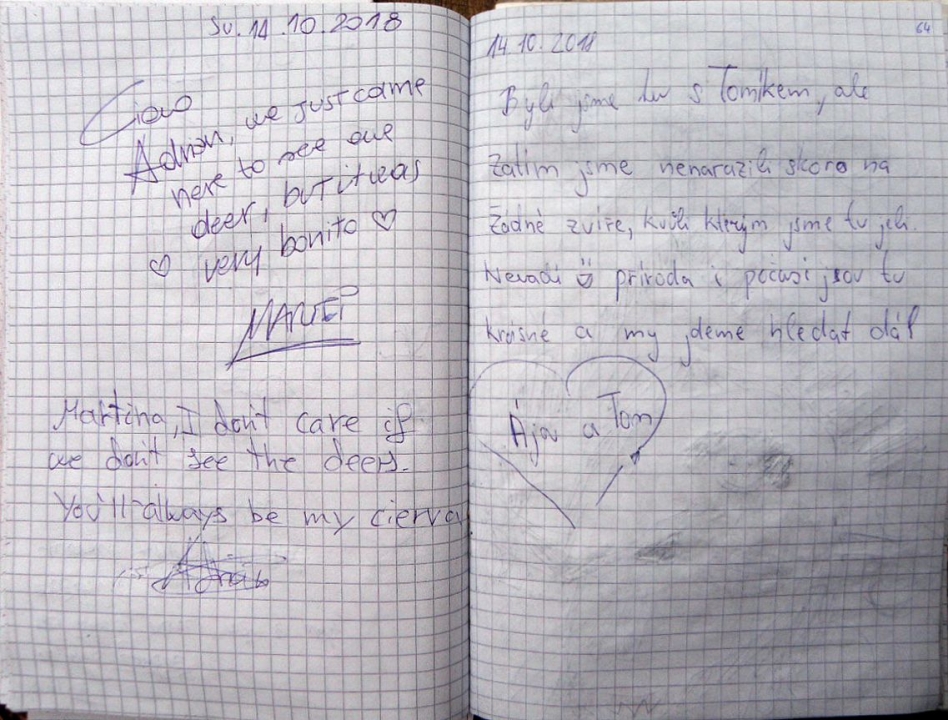 Su. 14.10.2018
Ciao
Adrian, we just came
here to see one
deer, but it was
♡ very bonito ♡
Martina, I don't care if
we don't see the deers.
You'll always be my cierva
64
14.10.2018
Byli jsme tu s Tomíkem, ale
zatím jsme nenarazili skoro na
žádné zvíře, kvůli kterým jsme tu jeli.
Nevadí příroda i počasí jsou tu
krásné a my jdeme hledat dál
Ája a Tom